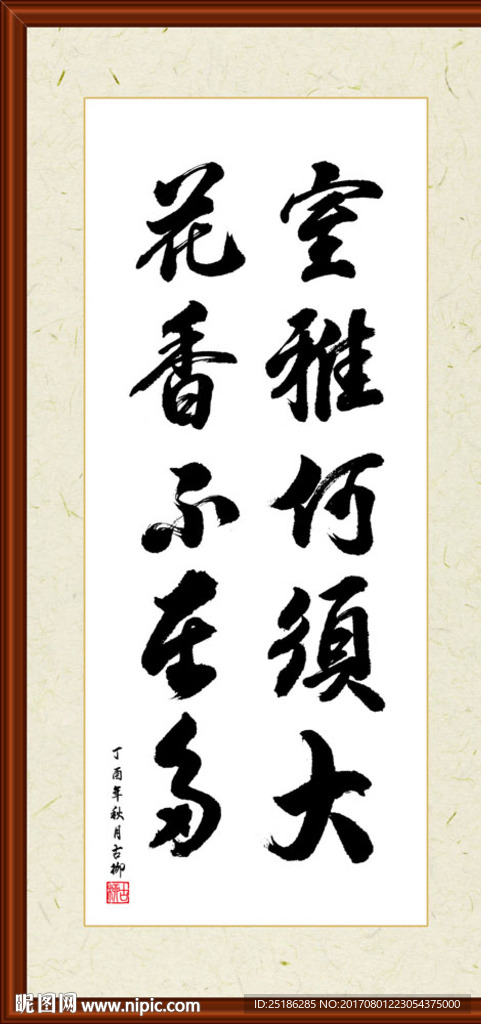 室雅何須大
花香不在多
丁酉年秋月古柳
昵图网 www.nipic.com
ID:25186285 NO:20170801223054375000